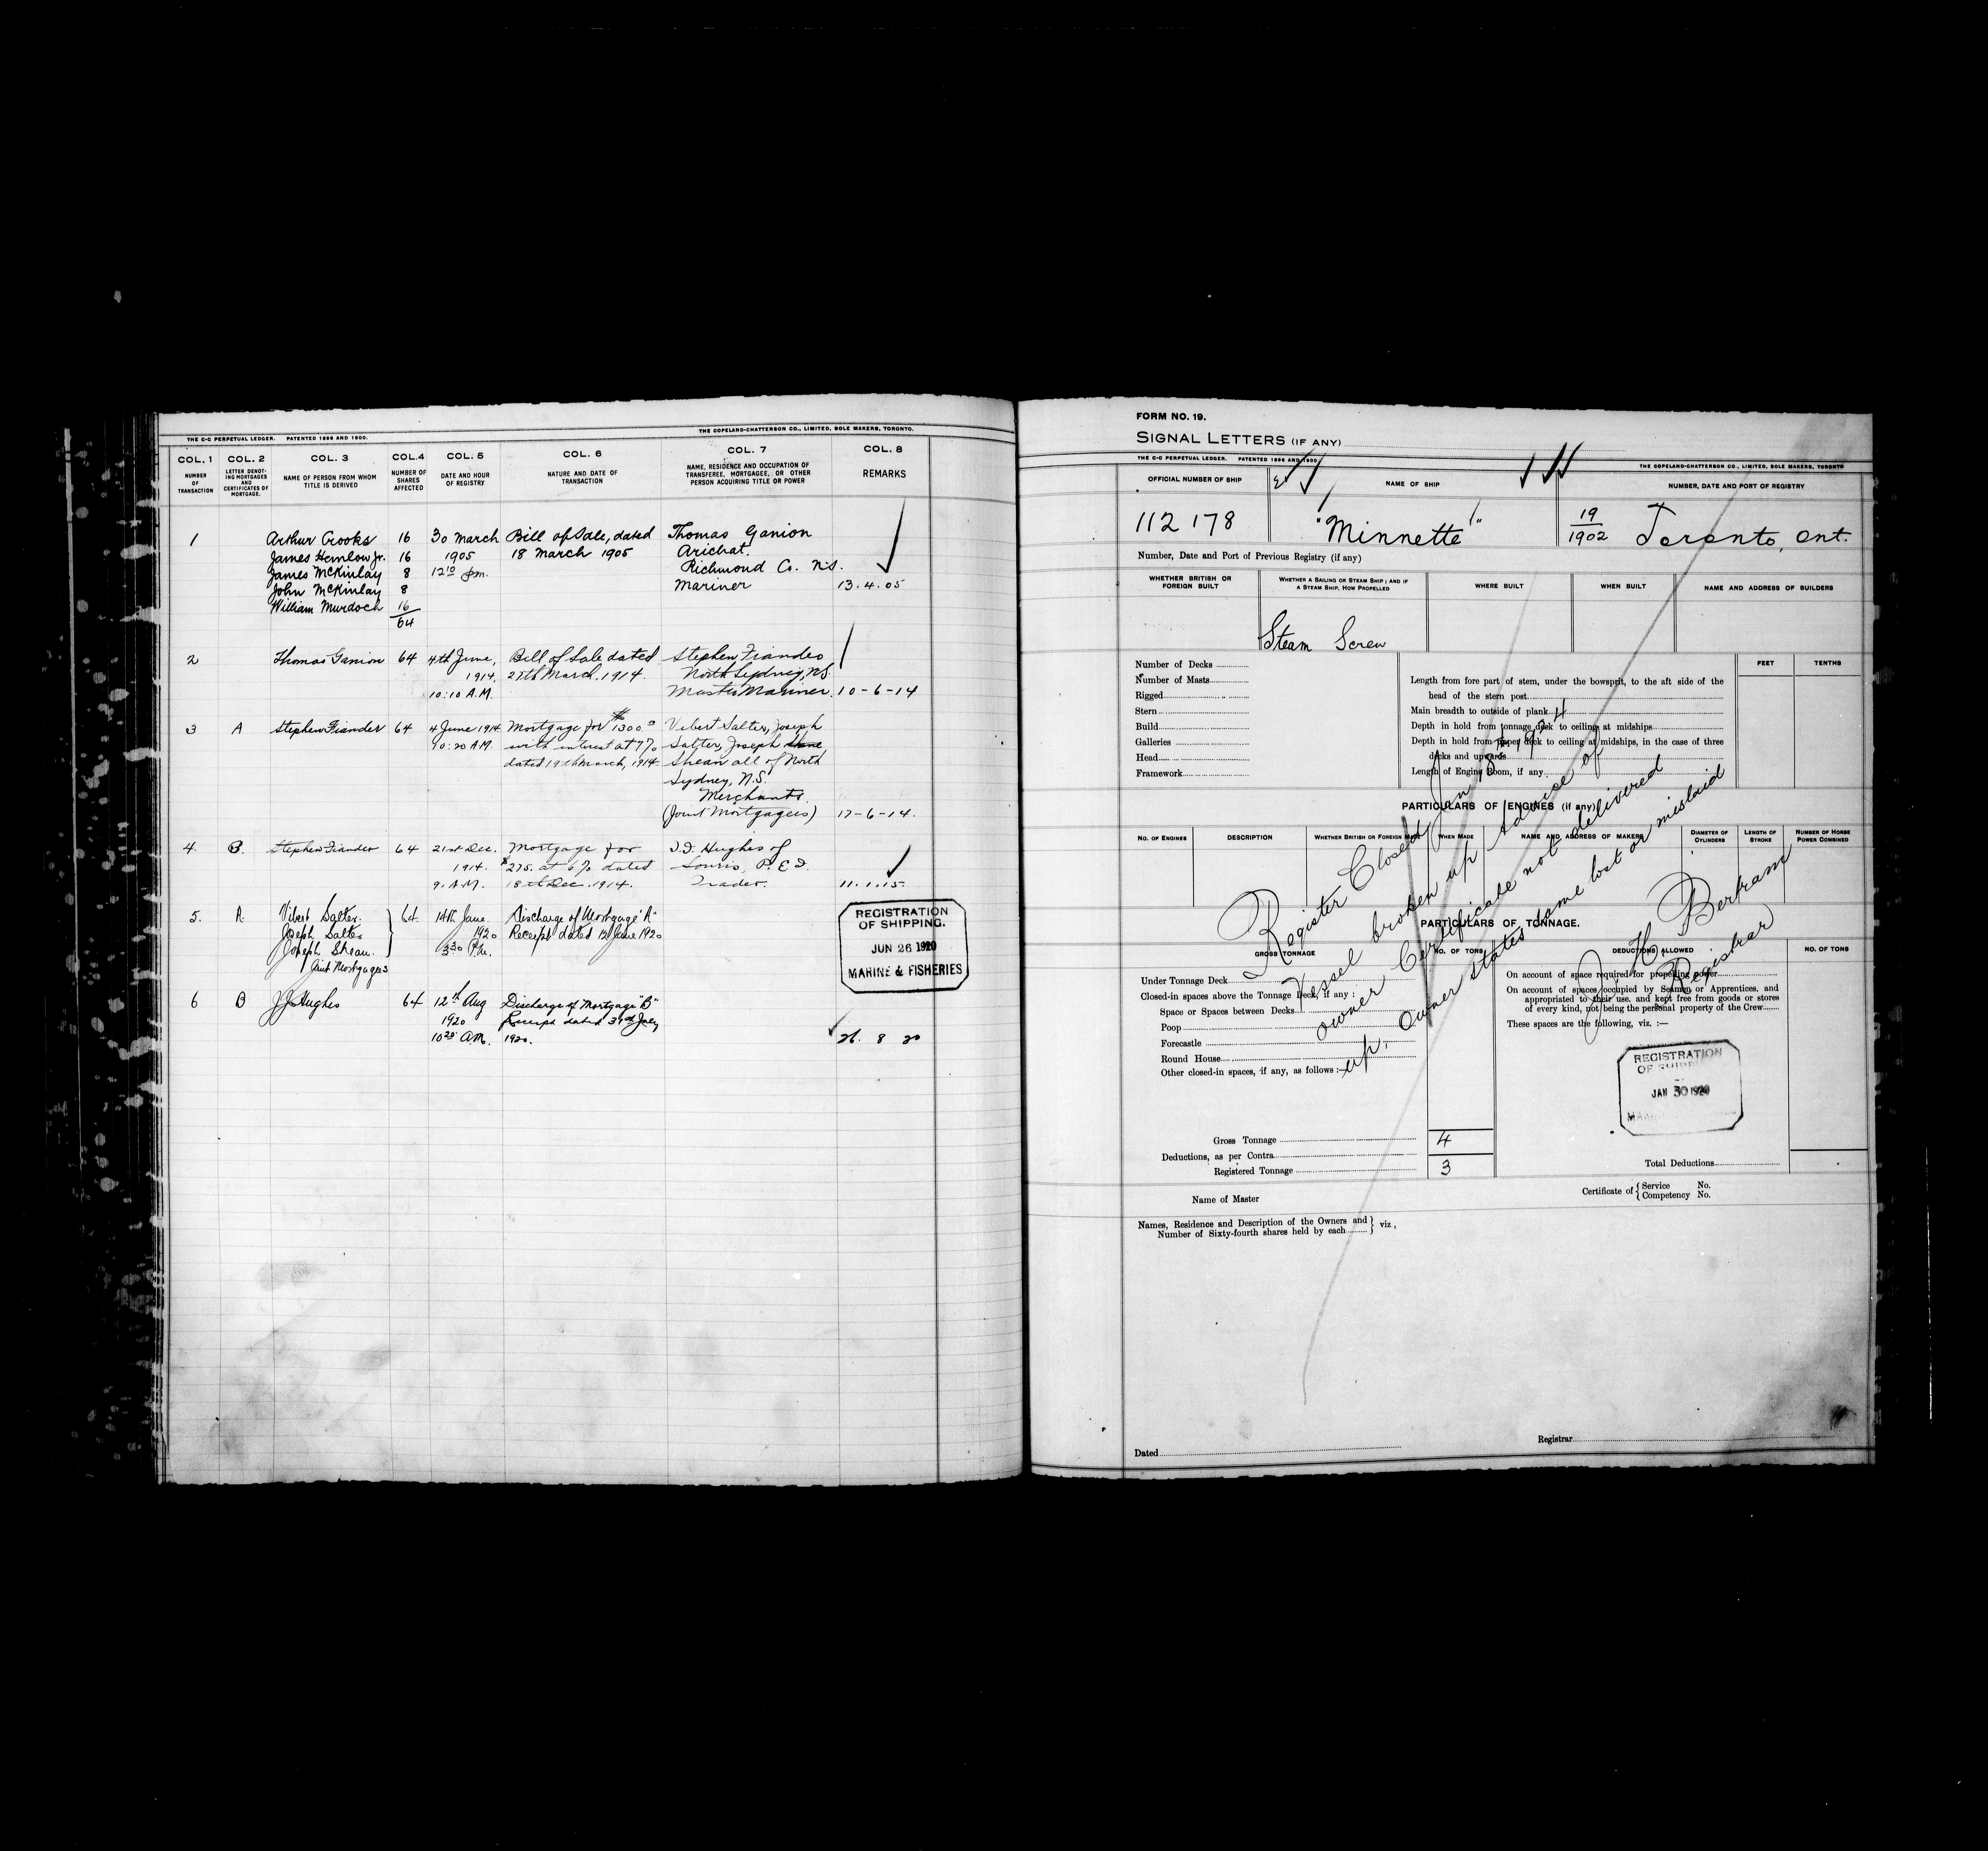 THE C-C PERPETUAL LEDGER. PATENTED 1896 AND 1900.
THE COPELAND-CHATTERSON CO., LIMITED, SOLE MAKERS, TORONTO.
COL. 1 COL. 2 COL. 3 COL. 4 COL. 5 COL. 6 COL. 7 COL. 8
NUMBER OF TRANSACTION
LETTER DENOTING MORTGAGES AND CERTIFICATES OF MORTGAGE.
NAME OF PERSON FROM WHOM TITLE IS DERIVED
NUMBER OF SHARES AFFECTED
DATE AND HOUR OF REGISTRY
NATURE AND DATE OF TRANSACTION
NAME, RESIDENCE AND OCCUPATION OF TRANSFEREE, MORTGAGEE, OR OTHER PERSON ACQUIRING TITLE OR POWER
REMARKS
1 Arthur Crooks 16 30 March Bill of Sale, dated Thomas Ganion
James Hemlow Jr. 16 1905 18 March 1905 Arichat.
James McKinlay 8 12 10 pm. Richmond Co. N.S.
John McKinlay 8 Mariner 13.4.05
William Murdoch 16
64
2 Thomas Ganion 64 4th June, Bill of Sale dated Stephen Fiander
1914. 27th March, 1914. North Sydney, N.S.
10:10 A.M. Master Mariner. 10-6-14
3 A Stephen Fiander 64 4 June 1914 Mortgage for $1300 Vibert Salter, Joseph
10:20 A.M. with interest at 7% Salter, Joseph
dated 19th March, 1914 Shean all of North
Sydney, N.S.
Merchants.
(Joint Mortgagees) 17-6-14.
4. B. Stephen Fiander 64 21st Dec. Mortgage for J.J. Hughes of
1914. $275. at 6% dated Souris, P.E.I.
9. A.M. 18th Dec. 1914. Trader. 11.1.15.
5. A Vibert Salter 64 14th June Discharge of Mortgage "A"
Joseph Salter 1920 Receipt dated 12 June 1920
Joseph Shean. 3 30 P.M.
Joint Mortgagees
REGISTRATION
OF SHIPPING.
JUN 26 1920
MARINE & FISHERIES
6 B J J Hughes 64 12th Aug Discharge of Mortgage "B"
1920 Receipt dated 31st July
10 25 A.M. 1920. 26. 8 20
FORM NO. 19.
SIGNAL LETTERS (IF ANY)
THE C-C PERPETUAL LEDGER. PATENTED 1896 AND 1900.
THE COPELAND-CHATTERSON CO., LIMITED, SOLE MAKERS, TORONTO
OFFICIAL NUMBER OF SHIP NAME OF SHIP NUMBER, DATE AND PORT OF REGISTRY
112 178 "Minnette" 19/1902 Toronto, Ont.
Number, Date and Port of Previous Registry (if any)
WHETHER BRITISH OR FOREIGN BUILT
WHETHER A SAILING OR STEAM SHIP; AND IF A STEAM SHIP, HOW PROPELLED
WHERE BUILT
WHEN BUILT
NAME AND ADDRESS OF BUILDERS
Steam Screw
Number of Decks
Number of Masts
Rigged
Stern
Build
Galleries
Head
Framework
FEET TENTHS
Length from fore part of stem, under the bowsprit, to the aft side of the
head of the stern post
Main breadth to outside of plank
Depth in hold from tonnage deck to ceiling at midships
Depth in hold from upper deck to ceiling at midships, in the case of three
decks and upwards
Length of Engine Room, if any
PARTICULARS OF ENGINES (if any)
NO. OF ENGINES DESCRIPTION WHETHER BRITISH OR FOREIGN MADE WHEN MADE NAME AND ADDRESS OF MAKERS DIAMETER OF CYLINDERS LENGTH OF STROKE NUMBER OF HORSE POWER COMBINED
Register Closed Jan 18th 1924
Vessel broken up Advice of
owner Certificate not delivered
up, Owner states same lost or mislaid
J. H. Bertram
Registrar
PARTICULARS OF TONNAGE.
GROSS TONNAGE NO. OF TONS DEDUCTIONS ALLOWED NO. OF TONS
Under Tonnage Deck
Closed-in spaces above the Tonnage Deck, if any :
Space or Spaces between Decks
Poop
Forecastle
Round House
Other closed-in spaces, if any, as follows :—
On account of space required for propelling power
On account of spaces occupied by Seamen or Apprentices, and
appropriated to their use, and kept free from goods or stores
of every kind, not being the personal property of the Crew
These spaces are the following, viz. :—
REGISTRATION
OF SHIPPING
JAN 30 1924
Gross Tonnage 4
Deductions, as per Contra
Registered Tonnage 3
Total Deductions
Name of Master
Certificate of { Service No.
Competency No.
Names, Residence and Description of the Owners and } viz,
Number of Sixty-fourth shares held by each
Dated
Registrar